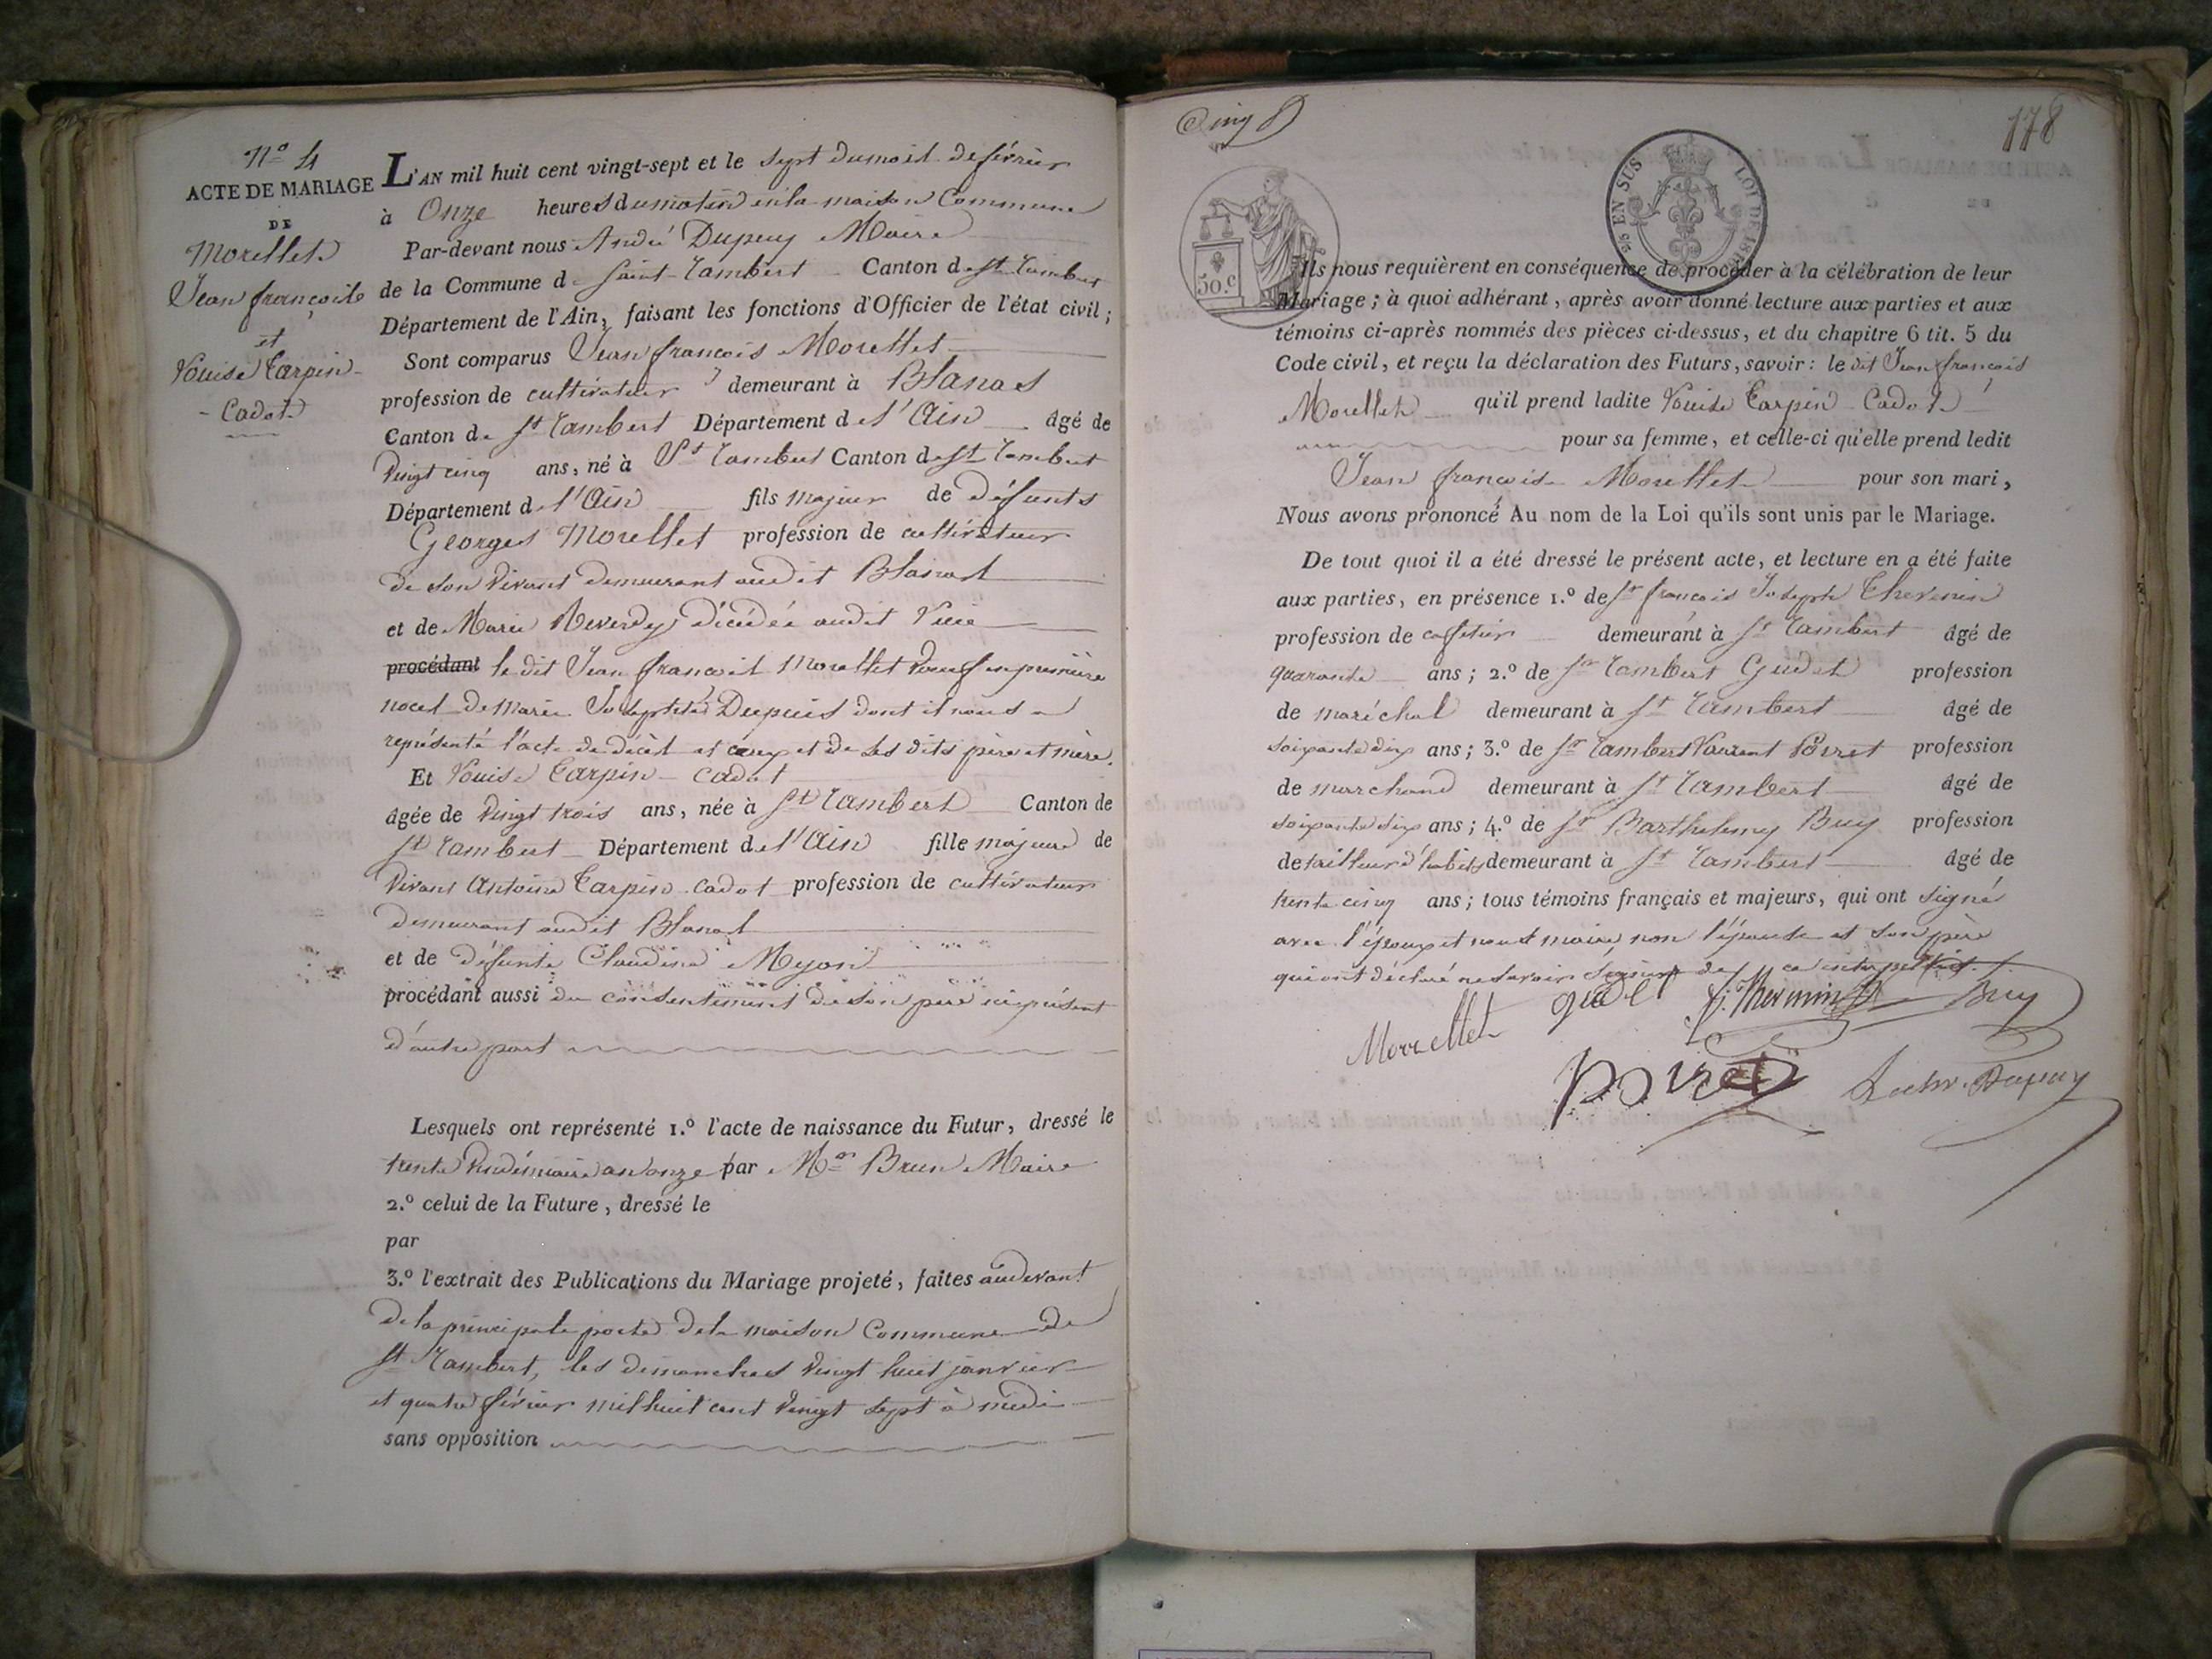 N.o 4
ACTE DE MARIAGE
DE
Morellet
Jean françois
et
Louise Tarpin-
- Cadot
L'AN mil huit cent vingt-sept et le sept du mois de février
à Onze heures du matin en la maison Commune
Par-devant nous André Dupuy Maire
de la Commune de Saint-Rambert Canton de St Rambert
Département de l'Ain, faisant les fonctions d'Officier de l'état civil;
Sont comparus Jean françois Morellet
profession de cultivateur demeurant à Blanas
Canton de St Rambert Département de l'Ain âgé de
vingt cinq ans, né à St Rambert Canton de St Rambert
Département de l'Ain fils majeur de défunts
Georges Morellet profession de cultivateur
de son vivant demeurant audit Blanas
et de Marie Reverdy décédée audit lieu
procédant le dit Jean françois Morellet veuf en première
noces de Marie Josephte Dupuis dont il nous a
représenté l'acte de décès et ceux de ses dits père et mère.
Et Louise Tarpin-Cadot
âgée de vingt trois ans, née à St Rambert Canton de
St Rambert Département de l'Ain fille majeure de
vivant Antoine Tarpin-Cadot profession de cultivateur
demeurant audit Blanas
et de défunte Claudine Myon
procédant aussi du consentement de son père ici présent
d'autre part
Lesquels ont représenté 1.o l'acte de naissance du Futur, dressé le
trente vendémiaire an onze par Mr Brun Maire
2.o celui de la Future, dressé le
par
3.o l'extrait des Publications du Mariage projeté, faites audevant
de la principale porte de la maison Commune de
St Rambert, les dimanches vingt huit janvier
et quatre février mil huit cent vingt sept à midi
sans opposition
Cinq
178
50.c
EN SUS
LOI DE
Ils nous requièrent en conséquence de procéder à la célébration de leur
Mariage; à quoi adhérant, après avoir donné lecture aux parties et aux
témoins ci-après nommés des pièces ci-dessus, et du chapitre 6 tit. 5 du
Code civil, et reçu la déclaration des Futurs, savoir: le dit Jean françois
Morellet qu'il prend ladite Louise Tarpin-Cadot
pour sa femme, et celle-ci qu'elle prend ledit
Jean françois Morellet pour son mari,
Nous avons prononcé Au nom de la Loi qu'ils sont unis par le Mariage.
De tout quoi il a été dressé le présent acte, et lecture en a été faite
aux parties, en présence 1.o de Sr françois Joseph Thevenin
profession de caffetier demeurant à St Rambert âgé de
quarante ans; 2.o de Sr Rambert Gudet profession
de maréchal demeurant à St Rambert âgé de
soixante dix ans; 3.o de Sr Rambert Laurent Poizet profession
de marchand demeurant à St Rambert âgé de
soixante dix ans; 4.o de Sr Barthelemy Buy profession
de tailleur d'habits demeurant à St Rambert âgé de
trente cinq ans; tous témoins français et majeurs, qui ont signé
avec l'époux et nous maire, non l'épouse et son père
qui ont déclaré ne savoir signer de ce interpellés.
Morellet gudet f.j. Thevenin Buy
Poizet Dupuy